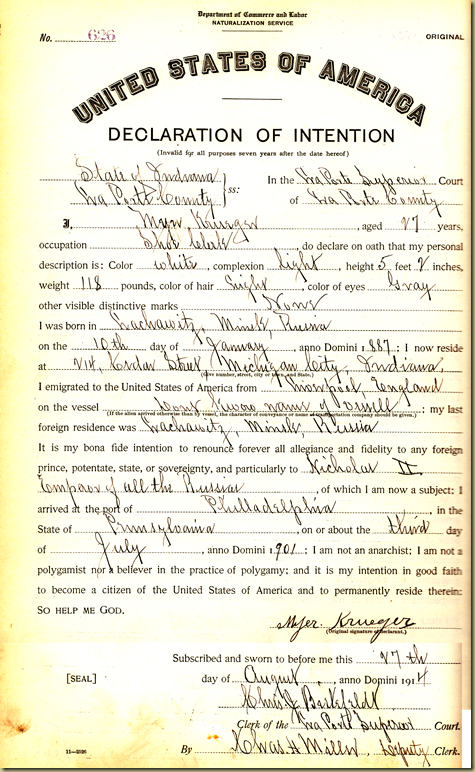 Department of Commerce and Labor
NATURALIZATION SERVICE
No. 626 ORIGINAL
UNITED STATES OF AMERICA
DECLARATION OF INTENTION
(Invalid for all purposes seven years after the date hereof)
State of Indiana In the La Porte Superior Court
La Porte County ss: of La Porte County
I, Myer Krueger, aged 27 years,
occupation Shoe Clerk, do declare on oath that my personal
description is: Color white, complexion light, height 5 feet 2 inches,
weight 118 pounds, color of hair Light, color of eyes Gray
other visible distinctive marks None
I was born in Lachawitz, Minsk, Russia
on the 10th day of January, anno Domini 1887; I now reside
at 214, Cedar Street Michigan City, Indiana,
(Give number, street, city or town, and State.)
I emigrated to the United States of America from Liverpool, England
on the vessel Dont know name of vessell; my last
(If the alien arrived otherwise than by vessel, the character of conveyance or name of transportation company should be given.)
foreign residence was Lachawitz, Minsk, Russia
It is my bona fide intention to renounce forever all allegiance and fidelity to any foreign
prince, potentate, state, or sovereignty, and particularly to Nicholas II
Emparor of all the Russia, of which I am now a subject; I
arrived at the port of Philladelphia, in the
State of Pennsylvania, on or about the third day
of July, anno Domini 1901; I am not an anarchist; I am not a
polygamist nor a believer in the practice of polygamy; and it is my intention in good faith
to become a citizen of the United States of America and to permanently reside therein:
SO HELP ME GOD.
Myer Krueger
(Original signature of declarant.)
Subscribed and sworn to before me this 27th
[SEAL] day of August, anno Domini 1914
Clerk of the La Porte Superior Court.
11—2526 By Chas H Miller, Deputy Clerk.